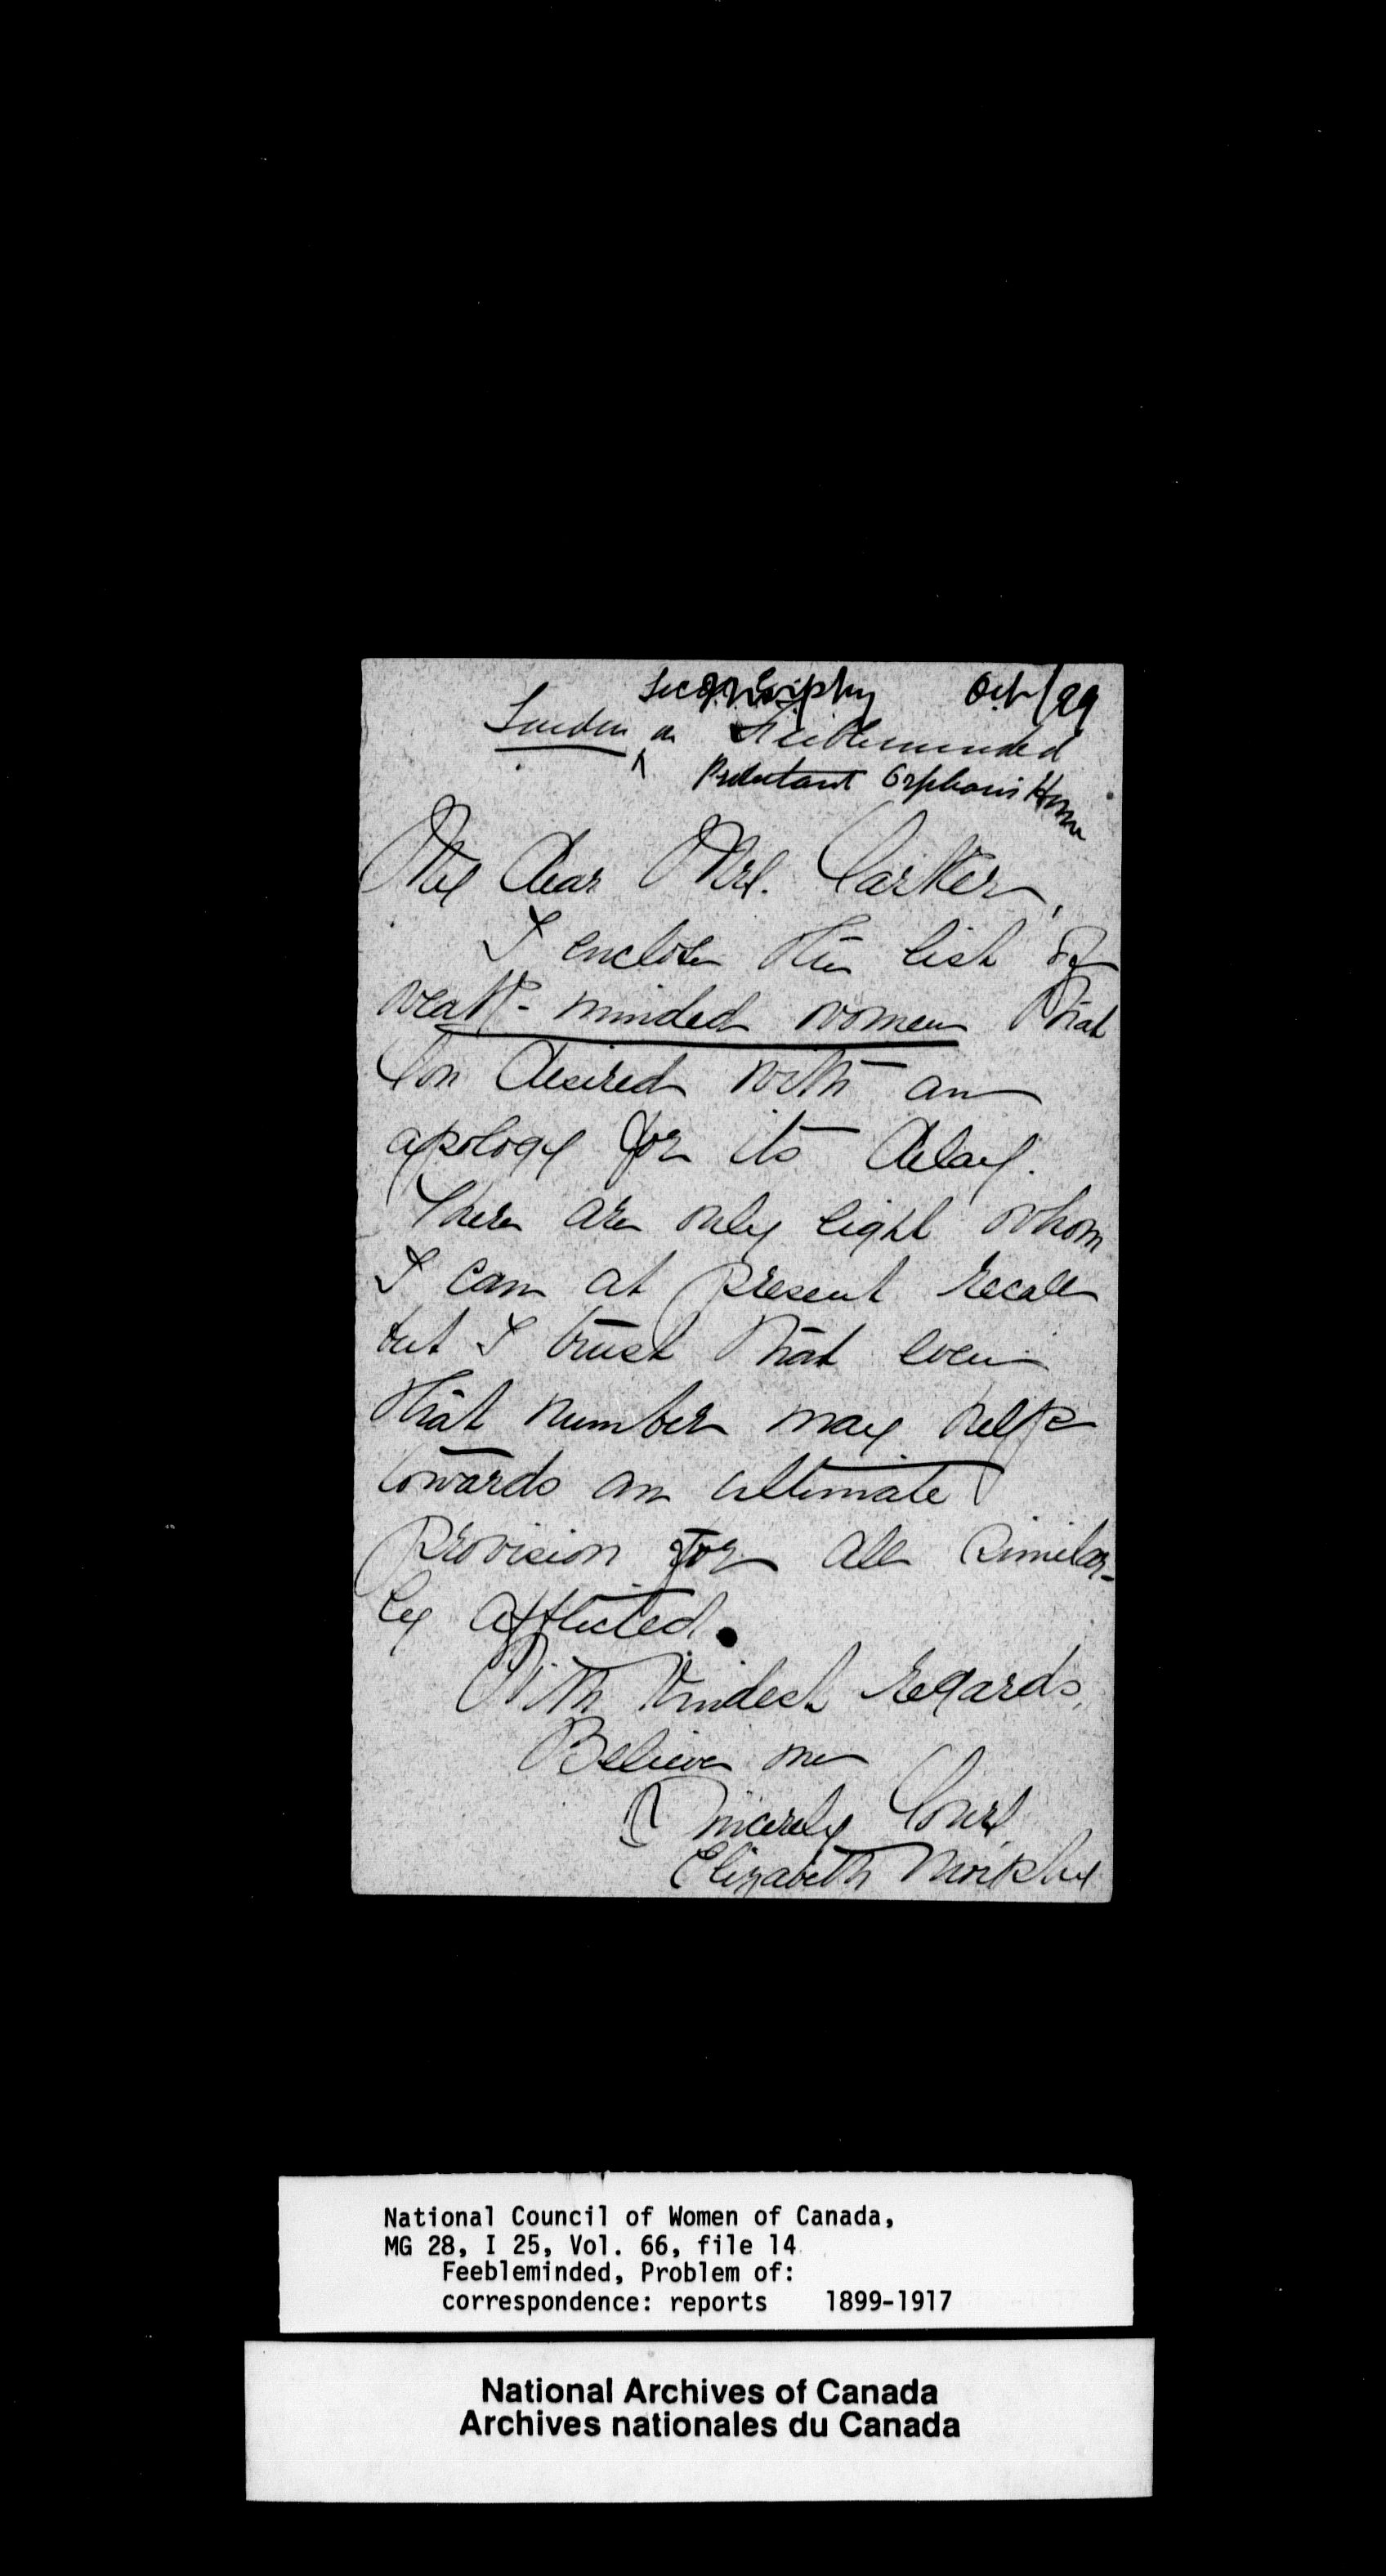 Oct/99
London on Feebleminded
Protestant Orphans Home
My dear Mrs.
I enclose the list of
weak-minded women that
You desired with an
apology for its delay.
There are only eight whom
I can at present recall
but I trust that even
that number may help
towards an ultimate
provision for all similar-
ly afflicted.
With kindest regards,
Believe me
Sincerely Yours,
Elizabeth Murphy
National Council of Women of Canada,
MG 28, I 25, Vol. 66, file 14
Feebleminded, Problem of:
correspondence: reports 1899-1917
National Archives of Canada
Archives nationales du Canada